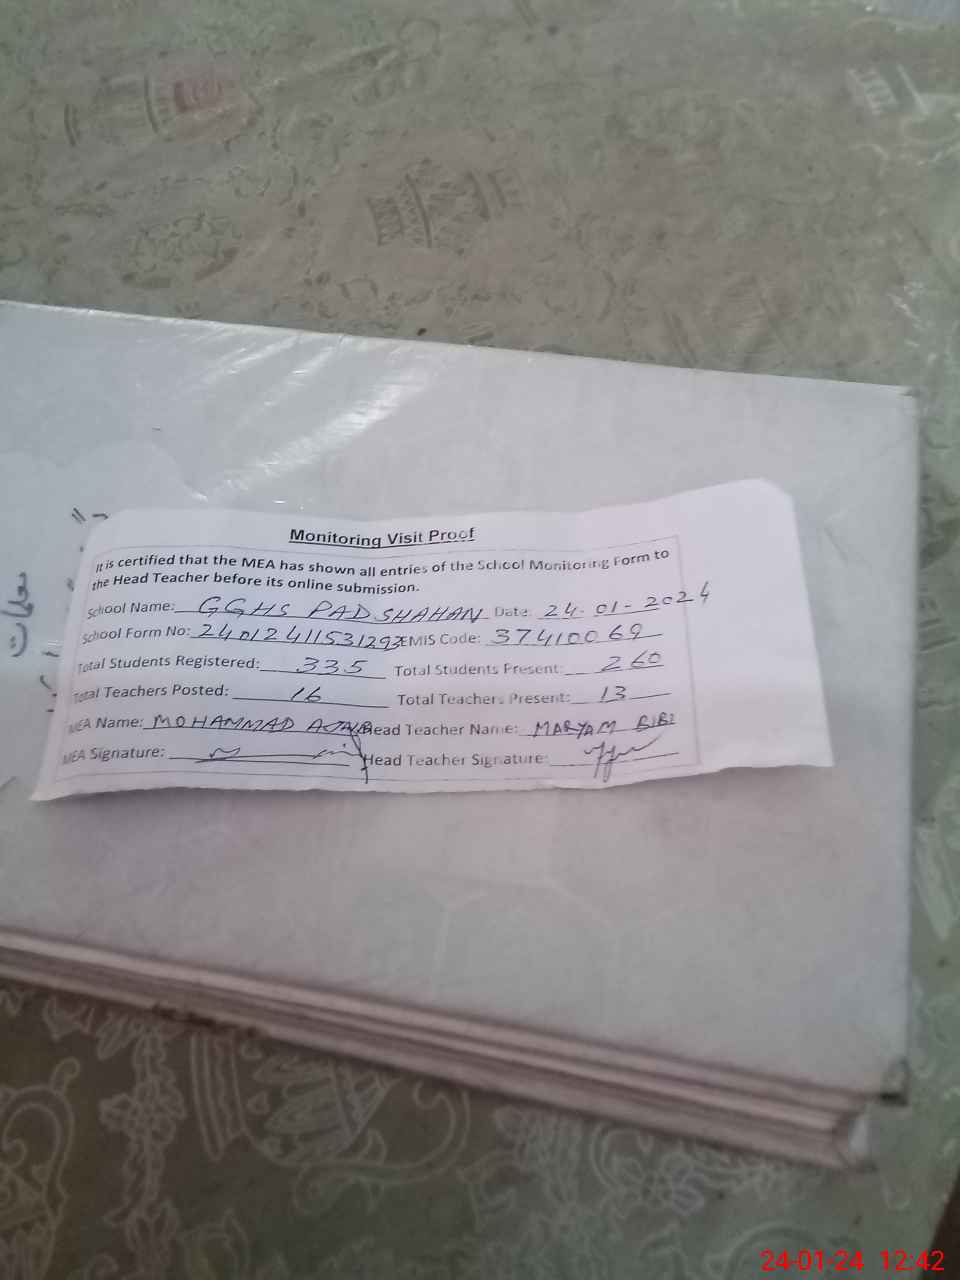 Monitoring Visit Proof
It is certified that the MEA has shown all entries of the School Monitoring Form to
the Head Teacher before its online submission.
School Name: GGHS PADSHAHAN Date: 24-01-2024
School Form No: 24012411531293 EMIS Code: 37410069
Total Students Registered: 335 Total Students Present: 260
Total Teachers Posted: 16 Total Teachers Present: 13
MEA Name: MOHAMMAD Head Teacher Name: MARYAM BIBI
MEA Signature: Head Teacher Signature:
24-01-24 12:42